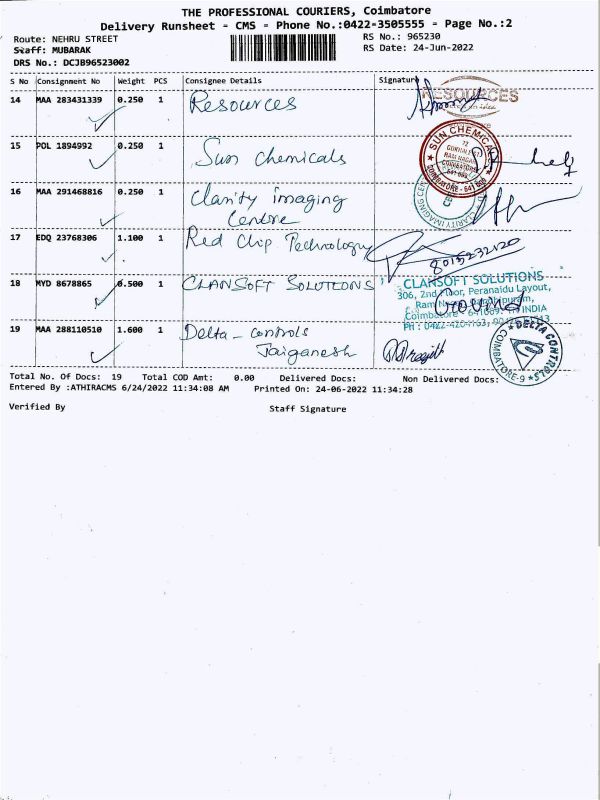 THE PROFESSIONAL COURIERS, Coimbatore
Delivery Runsheet - CMS - Phone No.:0422-3505555 - Page No.:2
Route: NEHRU STREET
RS No.: 965230
Staff: MUBARAK
RS Date: 24-Jun-2022
DRS No.: DCJB96523002
S No Consignment No Weight PCS Consignee Details Signature
14 MAA 283431339 0.250 1 Resources
RESOURCES
15 POL 1894992 0.250 1 Sun Chemicals
SUN CHEMICALS
COIMBATORE - 641 009
16 MAA 291468816 0.250 1 Clarity imaging
Centre
CLARITY IMAGING CEN
17 EDQ 23768306 1.100 1 Red Chip Technology
8015232120
18 MYD 8678865 0.500 1 CLANSOFT SOLUTIONS
CLANSOFT SOLUTIONS
306, 2nd Floor, Peranaidu Layout,
Ram Nagar, Gandhipuram,
Coimbatore - 641009. TN INDIA
Govind
19 MAA 288110510 1.600 1 Delta - controls
Jaiganesh
DELTA CONTROLS
COIMBATORE-9
Total No. Of Docs: 19 Total COD Amt: 0.00 Delivered Docs: Non Delivered Docs:
Entered By :ATHIRACMS 6/24/2022 11:34:08 AM Printed On: 24-06-2022 11:34:28
Verified By Staff Signature